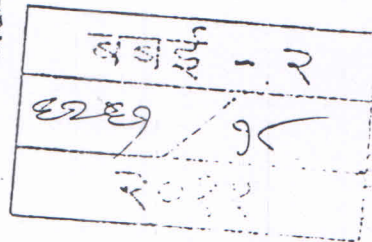 बबई - २
६२६१ / १८
२०११